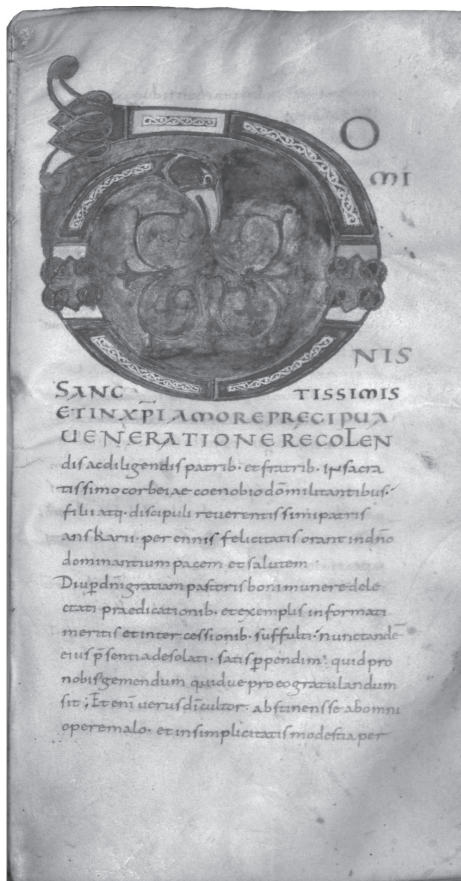 D O
MI
NIS
SANCTISSIMIS
ETINXPĪAMOREPRECIPUA
UENERATIONERECOLEN
disacdiligendispatrib· etfratrib· insacra
tissimocorbeiaecoenobiodōmilitantibus·
filiiatq· discipuli reuerentissimipatris
ansKarii· perennis felicitatisorant indn̄o
dominantium pacem et salutem
Diup̱dn̄igratiampastorisboni muneredele
ctati praedicationib· etexemplis informati
meritis etinter cessionib· suffulti· nunctandē
eius p̄sentiadesolati· satisp̱pendim᾽ quidpro
nobisgemendum quidue proeogratulandum
sit; Et enī uerusdīcultor· abstinensse abomni
operemalo· etinsimplicitatismodestiaper